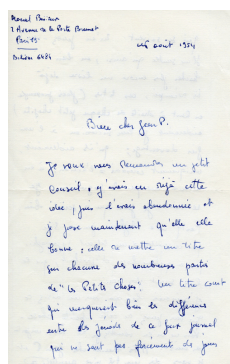 Marcel
7 Avenue de la Porte Brunet
Paris 19
6484
août 1954
Bien cher Jean P.
Je veux vous demander un petit
conseil. J'avais cette
idée, puis l'avais abandonnée et
je maintenant qu'elle est
bonne : celle de mettre un titre
sur chacune des nombreuses parties
de "les Petits Choses". Un titre court
qui bien les différences
entre les de ce faux journal
qui ne sont pas forcément des jours